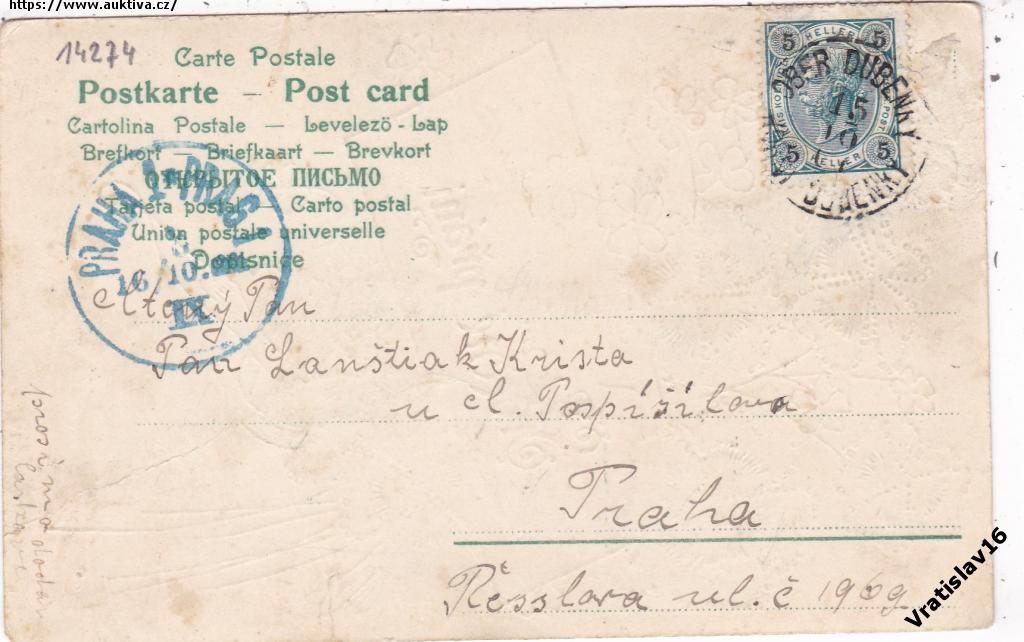 https://www.auktiva.cz/
14274
Carte Postale
Postkarte – Post card
Cartolina Postale — Levelező - Lap
Brefkort — Briefkaart — Brevkort
ОТКРЫТОЕ ПИСЬМО
Tarjeta postal — Carto postal
Union postale universelle
Dopisnice
PRAHA
16/10.
IX
5 HELLER 5
5 HELLER 5
OBER DUBENKY
15
10
DUBENKY
Ctěný Pan
Pan Lanštiak Krista
u cl. Pospíšilova
Praha
Résslova ul. č 1969
prosím o dodání
laskavé
Vratislav16